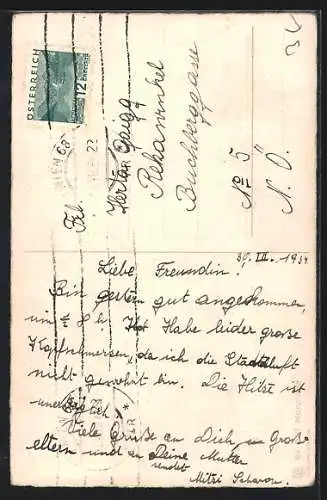 ÖSTERREICH
12
WIEN 68
Frl.
Herta
Rekawinkel
Buchberggasse
No 5
N. Ö.
1934
Liebe Freundin!
Bin gestern gut angekommen,
um h Habe leider große
Kopfschmerzen, da ich die Stadtluft
nicht gewöhnt bin. Die Hitze ist
unerträglich.
Viele Grüße an Dich, u. Groß
eltern und an Deine Mutter
sendet
Mitzi